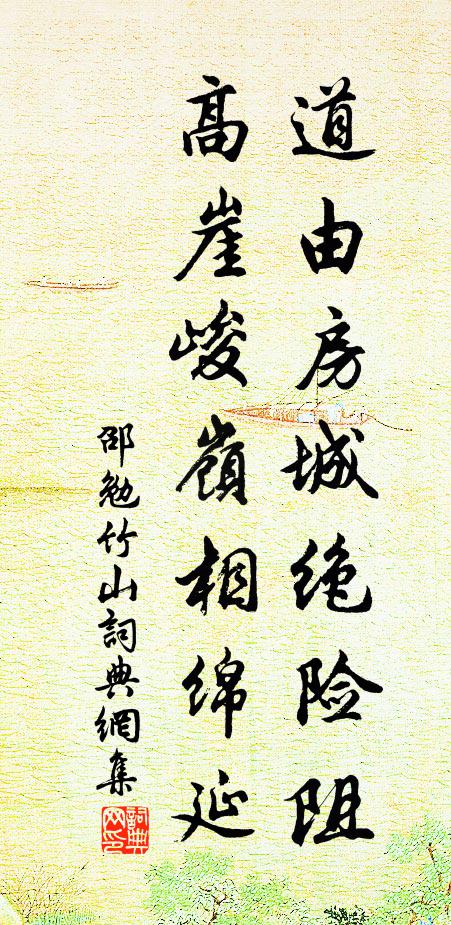 道由房城绝险阻
高崖峻嶺相绵延
邵勉竹山詞典網集
詞典网印